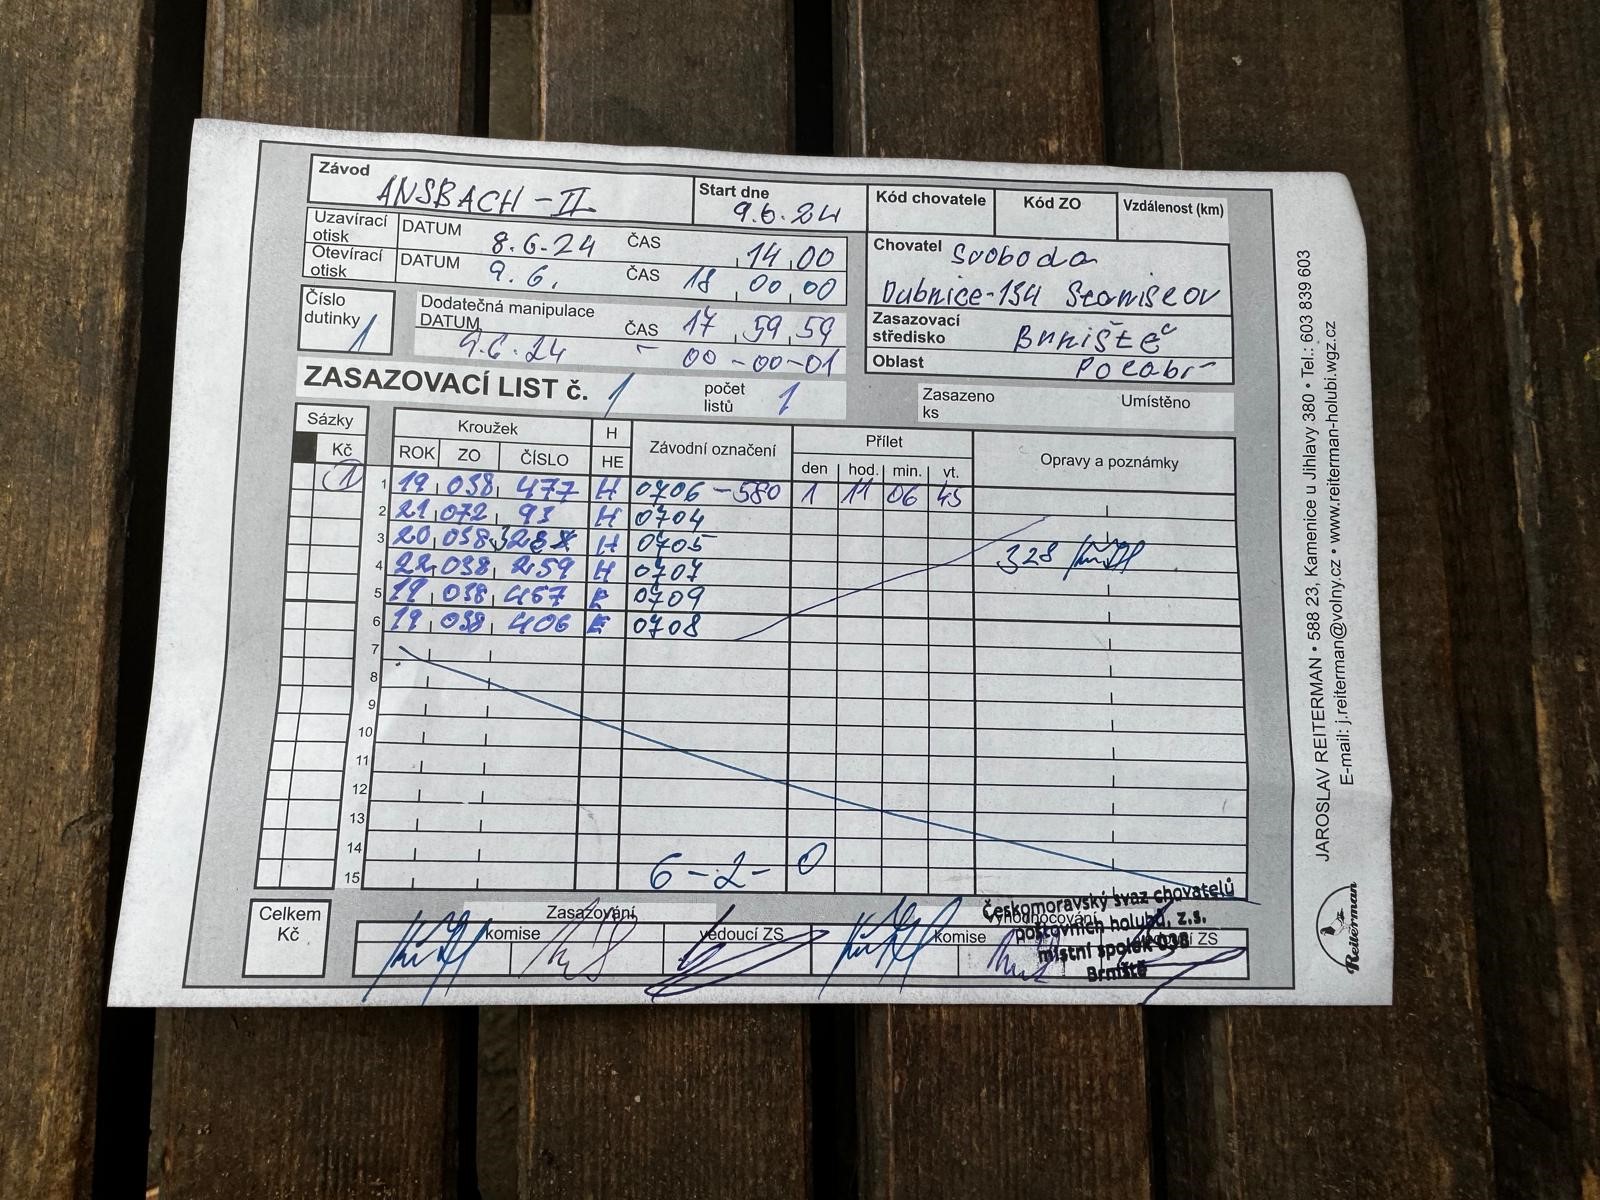 Závod ANSBACH-II Start dne 9.6.24 Kód chovatele Kód ZO Vzdálenost (km)
Uzavírací otisk DATUM 8.6.24 ČAS 14,00
Otevírací otisk DATUM 9.6. ČAS 18,00,00
Chovatel Svoboda
Dubnice-134 Stanislav
Číslo dutinky 1
Dodatečná manipulace
DATUM 9.6.24 ČAS 17,59,59
- 00-00-01
Zasazovací středisko Brniště
Oblast Polabí
ZASAZOVACÍ LIST č. 1 počet listů 1 Zasazeno ks Umístěno
Sázky Kroužek H Závodní označení Přílet Opravy a poznámky
Kč ROK ZO ČÍSLO HE den hod. min. vt.
① 1 19 038 477 H 0706-580 1 11 06 45
2 21 072 93 H 0704
3 20 038 328 H 0705 328
4 22 038 259 H 0707
5 19 038 467 E 0709
6 19 038 406 E 0708
7
8
9
10
11
12
13
14
15 6-2-0
Celkem Kč
Zasazování Vyhodnocování
komise vedoucí ZS komise vedoucí ZS
Českomoravský svaz chovatelů
poštovních holubů, z.s.
místní spolek 038
Brniště
JAROSLAV REITERMAN • 588 23, Kamenice u Jihlavy 380 • Tel.: 603 839 603
E-mail: j.reiterman@volny.cz • www.reiterman-holubi.wgz.cz
Reiterman